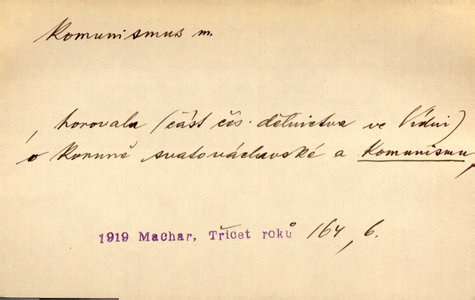 Komunismus m.
, horovala (část čes. dělnictva ve Vídni)
o koruně svatováclavské a Komunismu,
1919 Machar, Třicet roků 164, 6.